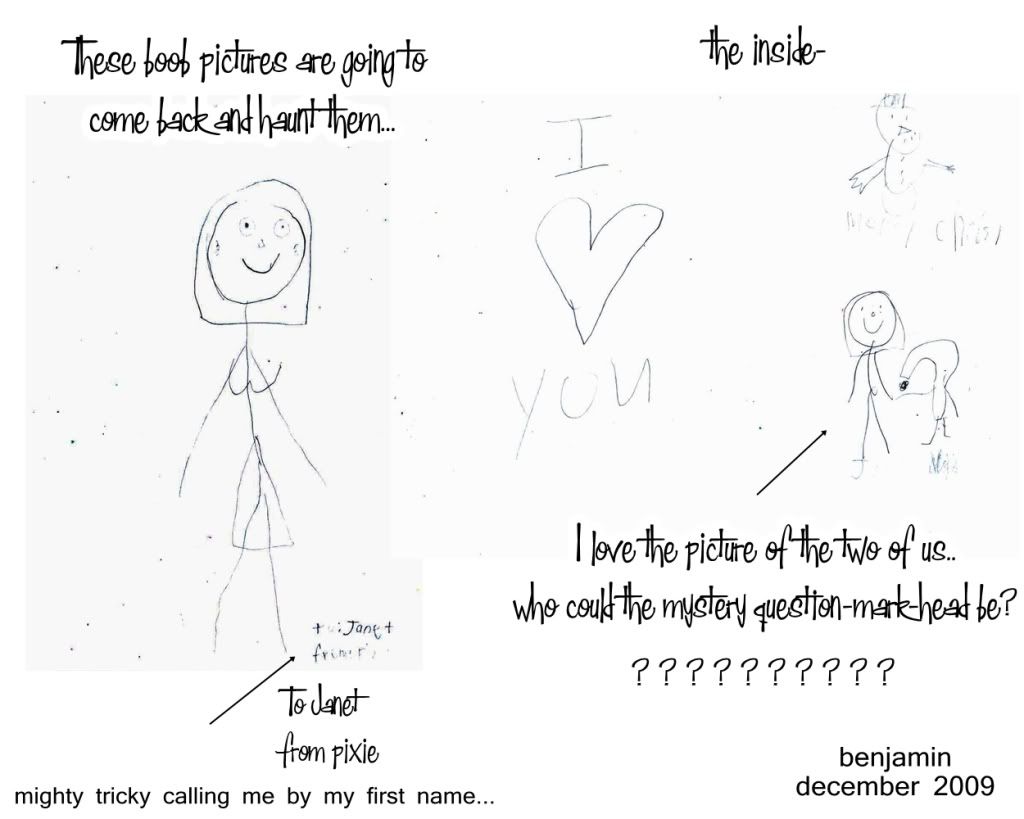 These boob pictures are going to
come back and haunt them...
to: Janet
To Janet
from pixie
mighty tricky calling me by my first name...
the inside-
I
YOU
merry
J
I love the picture of the two of us..
who could the mystery question-mark-head be?
??????????
benjamin
december 2009